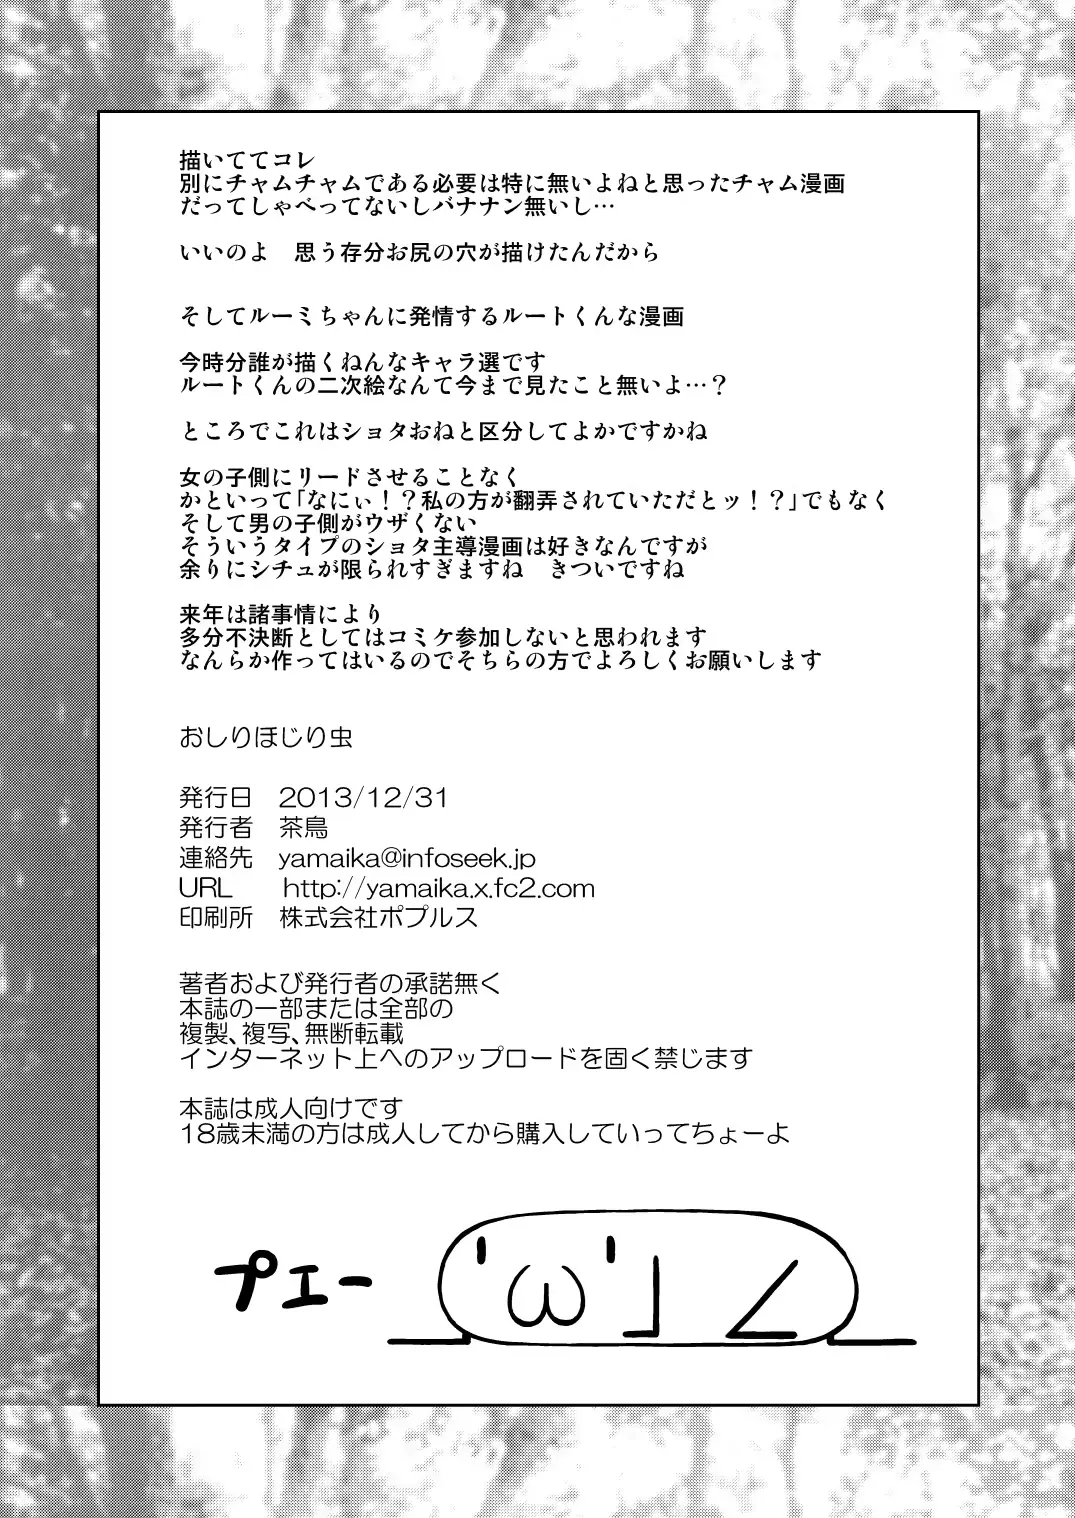 描いててコレ
別にチャムチャムである必要は特に無いよねと思ったチャム漫画
だってしゃべってないしバナナン無いし…
いいのよ　思う存分お尻の穴が描けたんだから
そしてルーミちゃんに発情するルートくんな漫画
今時分誰が描くねんなキャラ選です
ルートくんの二次絵なんて今まで見たこと無いよ…？
ところでこれはショタおねと区分してよかですかね
女の子側にリードさせることなく
かといって「なにぃ！？私の方が翻弄されていただとッ！？」でもなく
そして男の子側がウザくない
そういうタイプのショタ主導漫画は好きなんですが
余りにシチュが限られすぎますね　きついですね
来年は諸事情により
多分不決断としてはコミケ参加しないと思われます
なんらか作ってはいるのでそちらの方でよろしくお願いします
おしりほじり虫
発行日　2013/12/31
発行者　茶鳥
連絡先　yamaika@infoseek.jp
URL　　http://yamaika.x.fc2.com
印刷所　株式会社ポプルス
著者および発行者の承諾無く
本誌の一部または全部の
複製、複写、無断転載
インターネット上へのアップロードを固く禁じます
本誌は成人向けです
18歳未満の方は成人してから購入していってちょーよ
プエー